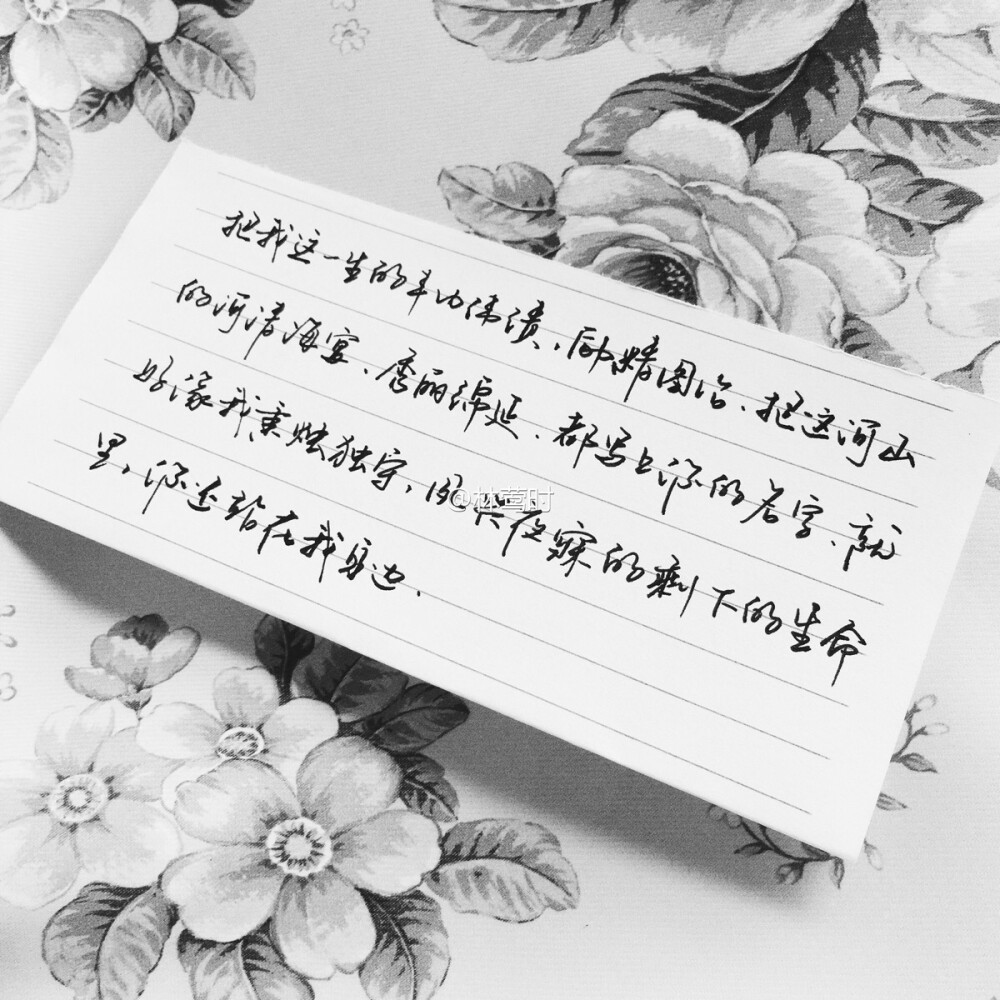 把我这一生的丰功伟绩、励精图治、把这河山
的河清海宴、秀丽绵延、都写上你的名字、就
好像我秉烛独守,夙兴夜寐的剩下的生命
里,你还站在我身边.
@林莺时